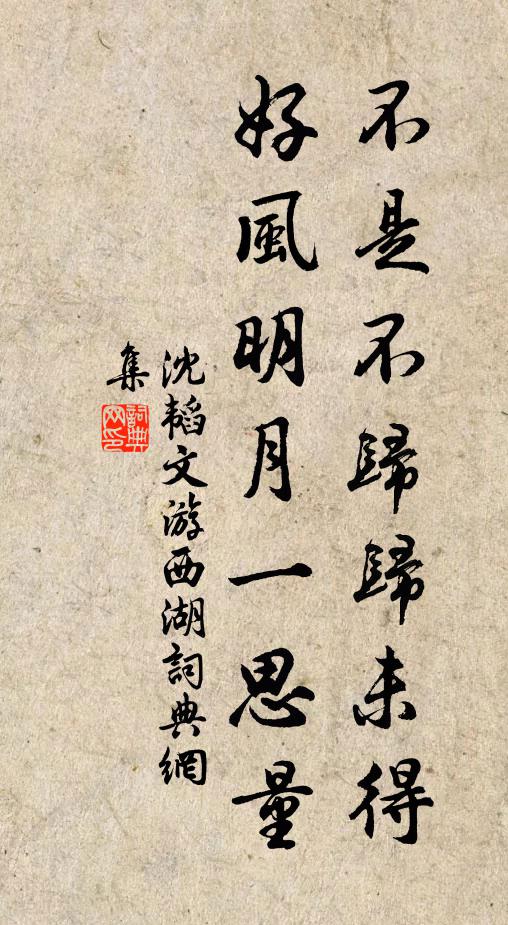 不是不歸歸未得
好風明月一思量
沈韬文游西湖詞典網
集
詞典
网印